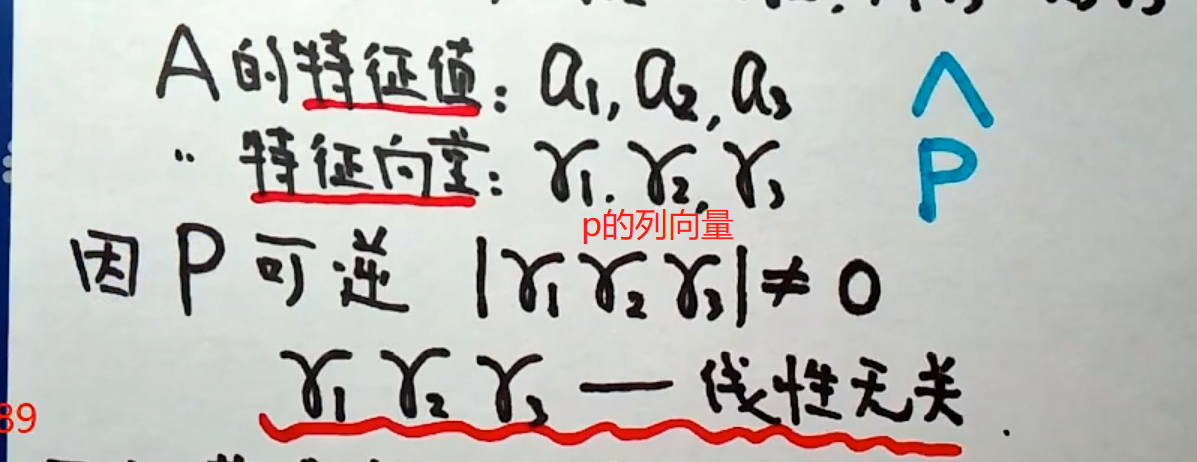 A的特征值: a₁, a₂, a₃ Λ
〃 特征向量: γ₁. γ₂, γ₃ P
p的列向量
因P可逆 |γ₁ γ₂ γ₃| ≠ 0
γ₁ γ₂ γ₃ — 线性无关.
89